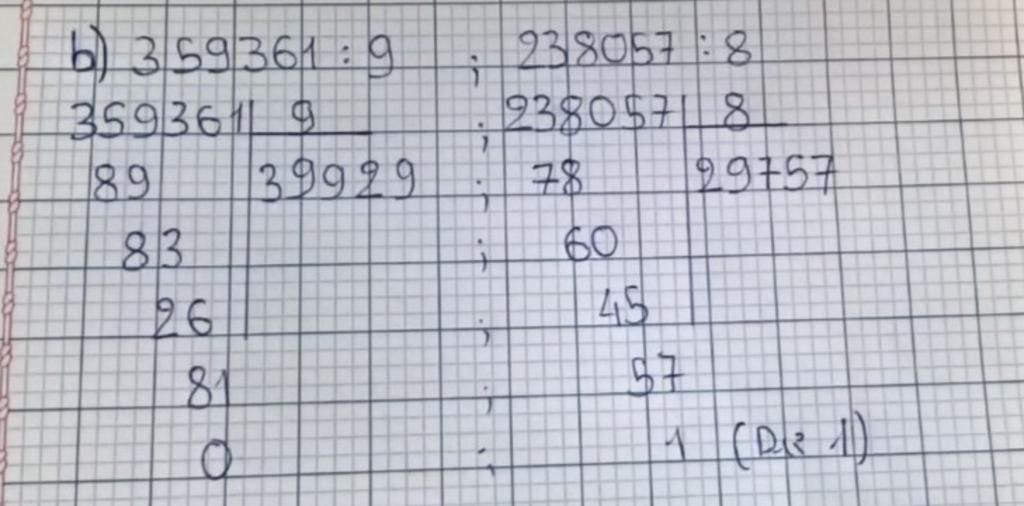 b) 359361 : 9 ; 238057 : 8
359361 9 ; 238057 8
89 39929 ; 78 29757
83 ; 60
26 ; 45
81 ; 57
0 ; 1 (Dư 1)